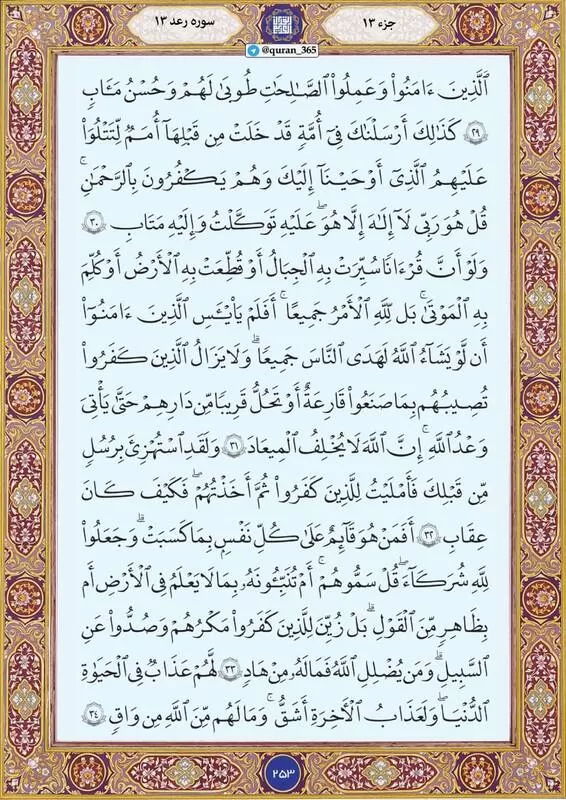 جزء ۱۳
سوره رعد ۱۳
@quran_365
ٱلَّذِينَ ءَامَنُواْ وَعَمِلُواْ ٱلصَّـٰلِحَـٰتِ طُوبَىٰ لَهُمْ وَحُسْنُ مَـَٔابٍ
٢٩ كَذَٰلِكَ أَرْسَلْنَـٰكَ فِىٓ أُمَّةٍ قَدْ خَلَتْ مِن قَبْلِهَآ أُمَمٌ لِّتَتْلُوَاْ
عَلَيْهِمُ ٱلَّذِىٓ أَوْحَيْنَآ إِلَيْكَ وَهُمْ يَكْفُرُونَ بِٱلرَّحْمَـٰنِ ۚ
قُلْ هُوَ رَبِّى لَآ إِلَـٰهَ إِلَّا هُوَ ۖ عَلَيْهِ تَوَكَّلْتُ وَإِلَيْهِ مَتَابِ ٣٠
وَلَوْ أَنَّ قُرْءَانًا سُيِّرَتْ بِهِ ٱلْجِبَالُ أَوْ قُطِّعَتْ بِهِ ٱلْأَرْضُ أَوْ كُلِّمَ
بِهِ ٱلْمَوْتَىٰ ۗ بَل لِّلَّهِ ٱلْأَمْرُ جَمِيعًا ۗ أَفَلَمْ يَا۟يْـَٔسِ ٱلَّذِينَ ءَامَنُوٓاْ
أَن لَّوْ يَشَآءُ ٱللَّهُ لَهَدَى ٱلنَّاسَ جَمِيعًا ۗ وَلَا يَزَالُ ٱلَّذِينَ كَفَرُواْ
تُصِيبُهُم بِمَا صَنَعُواْ قَارِعَةٌ أَوْ تَحُلُّ قَرِيبًا مِّن دَارِهِمْ حَتَّىٰ يَأْتِىَ
وَعْدُ ٱللَّهِ ۚ إِنَّ ٱللَّهَ لَا يُخْلِفُ ٱلْمِيعَادَ ٣١ وَلَقَدِ ٱسْتُهْزِئَ بِرُسُلٍ
مِّن قَبْلِكَ فَأَمْلَيْتُ لِلَّذِينَ كَفَرُواْ ثُمَّ أَخَذْتُهُمْ ۖ فَكَيْفَ كَانَ
عِقَابِ ٣٢ أَفَمَنْ هُوَ قَآئِمٌ عَلَىٰ كُلِّ نَفْسٍۭ بِمَا كَسَبَتْ ۗ وَجَعَلُواْ
لِلَّهِ شُرَكَآءَ ۖ قُلْ سَمُّوهُمْ ۚ أَمْ تُنَبِّـُٔونَهُۥ بِمَا لَا يَعْلَمُ فِى ٱلْأَرْضِ أَم
بِظَـٰهِرٍ مِّنَ ٱلْقَوْلِ ۗ بَلْ زُيِّنَ لِلَّذِينَ كَفَرُواْ مَكْرُهُمْ وَصُدُّواْ عَنِ
ٱلسَّبِيلِ ۗ وَمَن يُضْلِلِ ٱللَّهُ فَمَا لَهُۥ مِنْ هَادٍ ٣٣ لَّهُمْ عَذَابٌ فِى ٱلْحَيَوٰةِ
ٱلدُّنْيَا ۖ وَلَعَذَابُ ٱلْأَخِرَةِ أَشَقُّ ۖ وَمَا لَهُم مِّنَ ٱللَّهِ مِن وَاقٍ ٣٤
۲۵۳